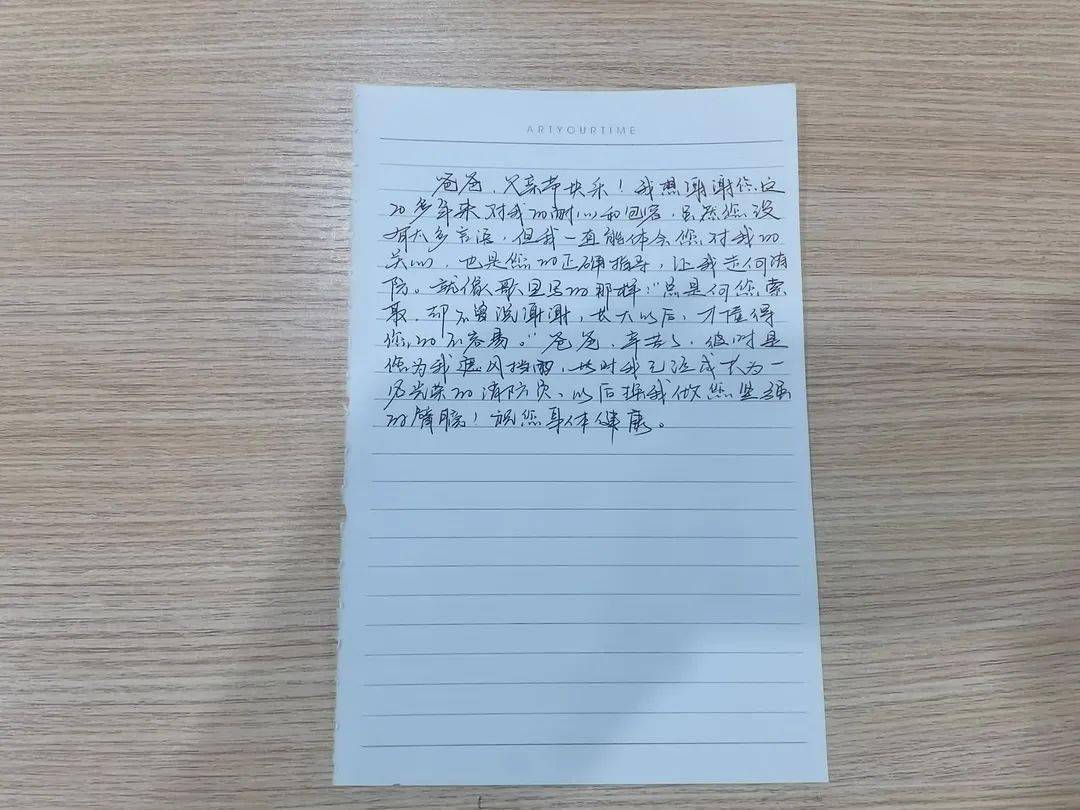 ARTYOURTIME
爸爸，父亲节快乐！我想谢谢您这
20多年来对我的耐心和包容，虽然您没
有太多言语，但我一直能体会您对我的
关心，也是您的正确指导，让我走向消
防。就像歌里写的那样：“总是向您索
取，却不曾说谢谢，长大以后，才懂得
您的不容易。”爸爸，辛苦了，彼时是
您为我遮风挡雨，此时我已经成长为一
名光荣的消防员，以后换我做您坚强
的臂膀！祝您身体健康。